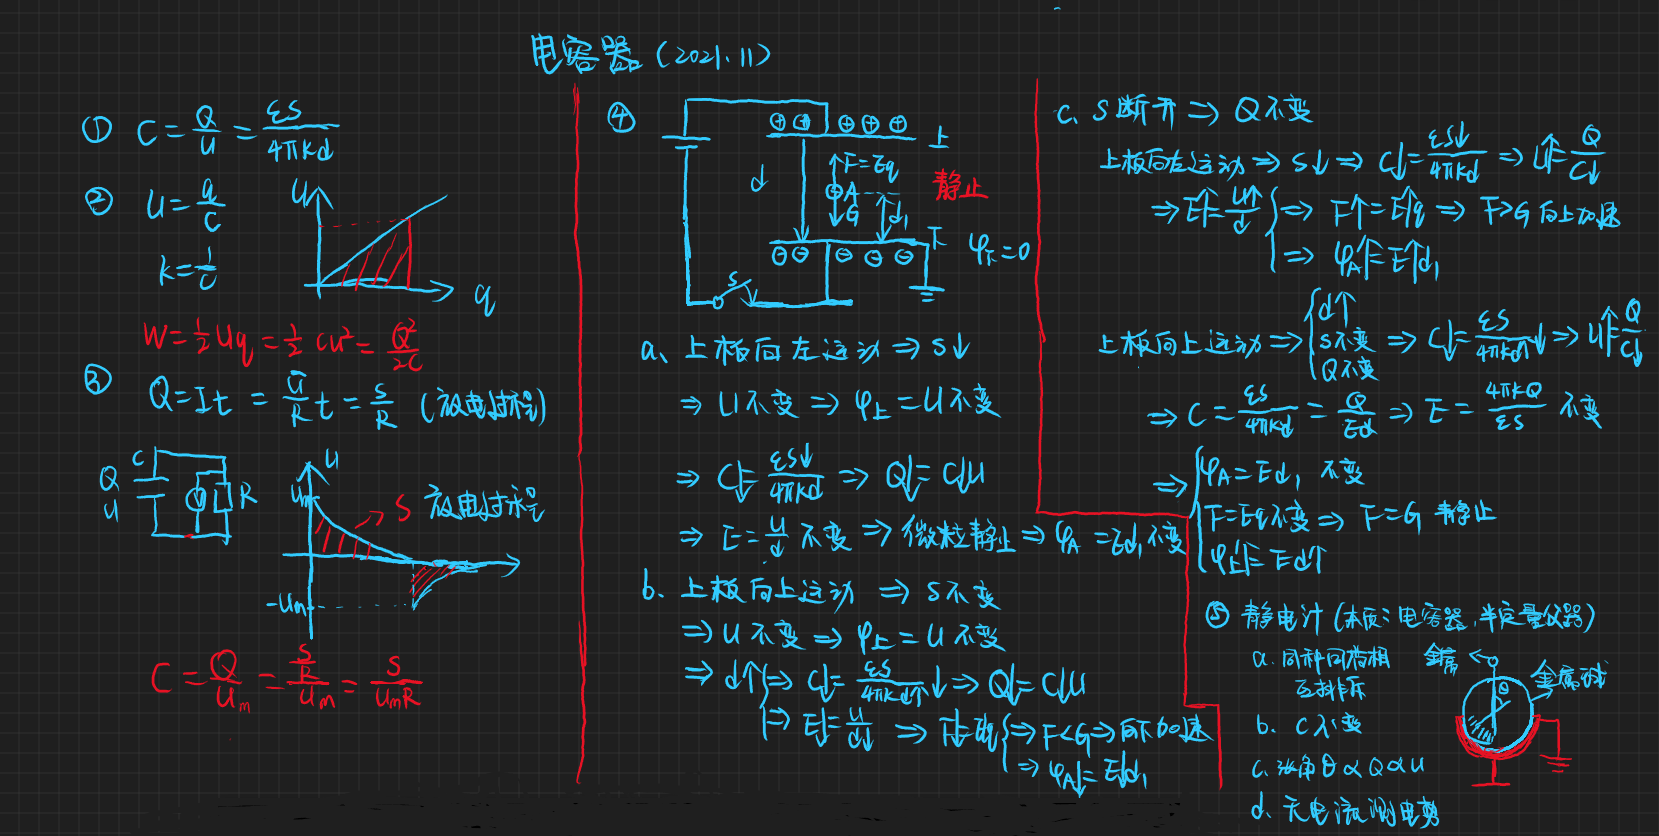 电容器 (2021.11)
① C = Q/U = εS/4πkd
② U = q/C
k = 1/C
U
q
W = ½Uq = ½CU² = Q²/2C
③ Q = It = Ū/R t = S/R (放电过程)
C
Q
U
V
R
U
Um
S 放电过程
-Um
C = Q/Um = (S/R)/Um = S/UmR
④
⊕ ⊕ ⊕ ⊕ ⊕
上
d
F = Eq
A
G
d₁
静止
下 φ下 = 0
⊖ ⊖ ⊖ ⊖ ⊖
S
a、上板向左运动 ⇒ S↓
⇒ U不变 ⇒ φ上 = U不变
⇒ C↓ = εS↓/4πkd ⇒ Q↓ = C↓U
⇒ E = U/d 不变 ⇒ 微粒静止 ⇒ φA = Ed₁不变
b、上板向上运动 ⇒ S不变
⇒ U不变 ⇒ φ上 = U不变
⇒ d↑ ⇒ C↓ = εS/4πkd↑ ↓ ⇒ Q↓ = C↓U
⇒ E↓ = U/d ↓ ⇒ F↓ = Eq ⇒ F<G ⇒ 向下加速
⇒ φA↓ = E↓d₁
c、S断开 ⇒ Q不变
上板向左运动 ⇒ S↓ ⇒ C↓ = εS↓/4πkd ⇒ U↑ = Q/C↓
⇒ E↑ = U↑/d ⇒ F↑ = E↑q ⇒ F>G 向上加速
⇒ φA↑ = E↑d₁
上板向上运动 ⇒ d↑
S不变
Q不变
⇒ C↓ = εS/4πkd↑ ↓ ⇒ U↑ = Q/C↓
⇒ C = εS/4πkd = Q/Ed ⇒ E = 4πkQ/εS 不变
⇒ φA = Ed₁ 不变
F = Eq不变 ⇒ F = G 静止
φ上↑ = Ed↑
⑤ 静电计 (本质:电容器,半定量仪器)
a. 同种同荷相
互排斥
金属
θ
金属球
b. C不变
c. 张角θ∝Q∝U
d、无电流测电势